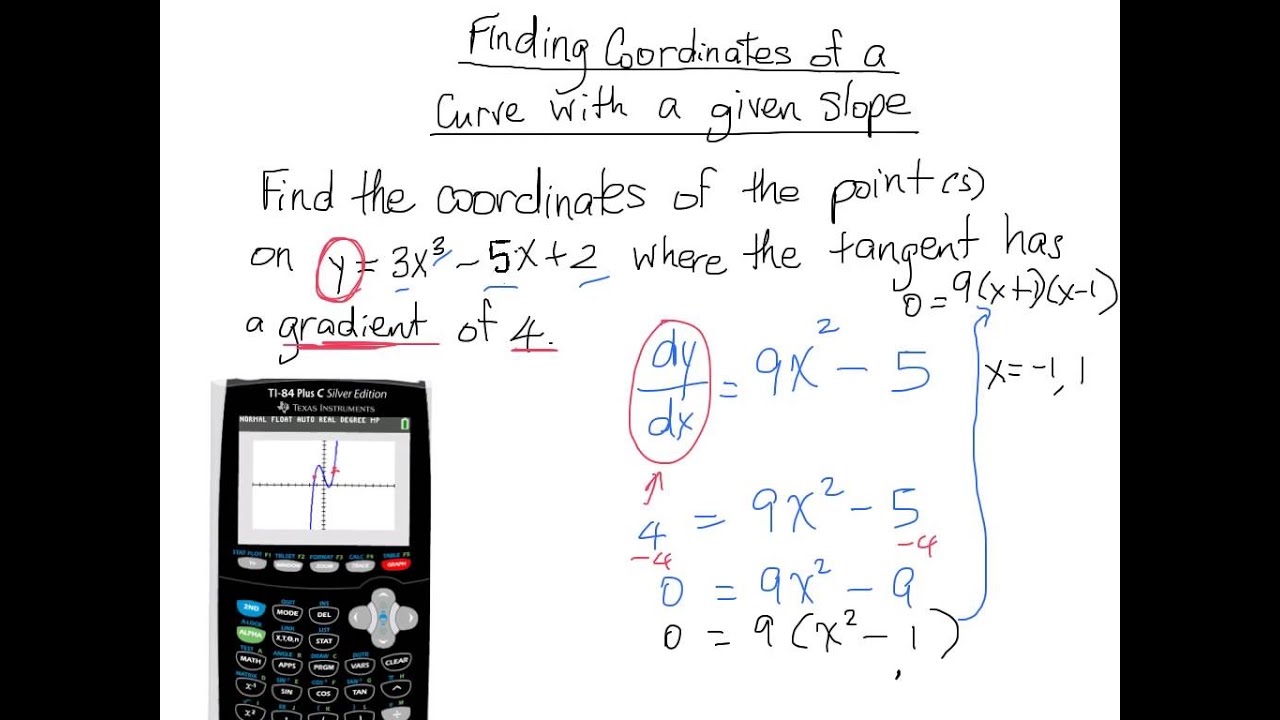 Finding Coordinates of a
Curve with a given slope
Find the coordinates of the point(s)
on y = 3x³ - 5x + 2 where the tangent has
a gradient of 4.
0 = 9(x+1)(x-1)
x = -1, 1
dy/dx = 9x² - 5
4 = 9x² - 5
-4 -4
0 = 9x² - 9
0 = 9(x² - 1)
TI-84 Plus C Silver Edition
TEXAS INSTRUMENTS
NORMAL FLOAT AUTO REAL DEGREE MP
STAT PLOT F1 TBLSET F2 FORMAT F3 CALC F4 TABLE F5
Y= WINDOW ZOOM TRACE GRAPH
QUIT INS
2ND MODE DEL
A-LOCK LINK LIST
ALPHA X,T,Θ,n STAT
TEST A ANGLE B DRAW C DISTR
MATH APPS PRGM VARS CLEAR
MATRIX D SIN⁻¹ E COS⁻¹ F TAN⁻¹ G π H
x⁻¹ SIN COS TAN ^
x²